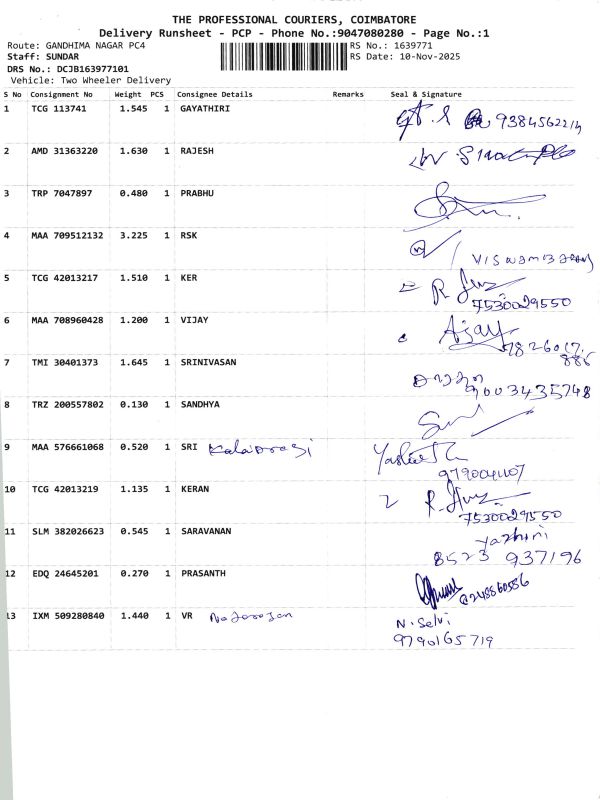 THE PROFESSIONAL COURIERS, COIMBATORE
Delivery Runsheet - PCP - Phone No.:9047080280 - Page No.:1
Route: GANDHIMA NAGAR PC4 RS No.: 1639771
Staff: SUNDAR RS Date: 10-Nov-2025
DRS No.: DCJB163977101
Vehicle: Two Wheeler Delivery
S No Consignment No Weight PCS Consignee Details Remarks Seal & Signature
1 TCG 113741 1.545 1 GAYATHIRI
2 AMD 31363220 1.630 1 RAJESH
3 TRP 7047897 0.480 1 PRABHU
4 MAA 709512132 3.225 1 RSK
5 TCG 42013217 1.510 1 KER
7530029550
6 MAA 708960428 1.200 1 VIJAY Ajay
7 TMI 30401373 1.645 1 SRINIVASAN
9003435748
8 TRZ 200557802 0.130 1 SANDHYA
9 MAA 576661068 0.520 1 SRI
10 TCG 42013219 1.135 1 KERAN
7530029550
11 SLM 382026623 0.545 1 SARAVANAN Yazhini
8523 937196
12 EDQ 24645201 0.270 1 PRASANTH
13 IXM 509280840 1.440 1 VR N. Selvi
9790165719